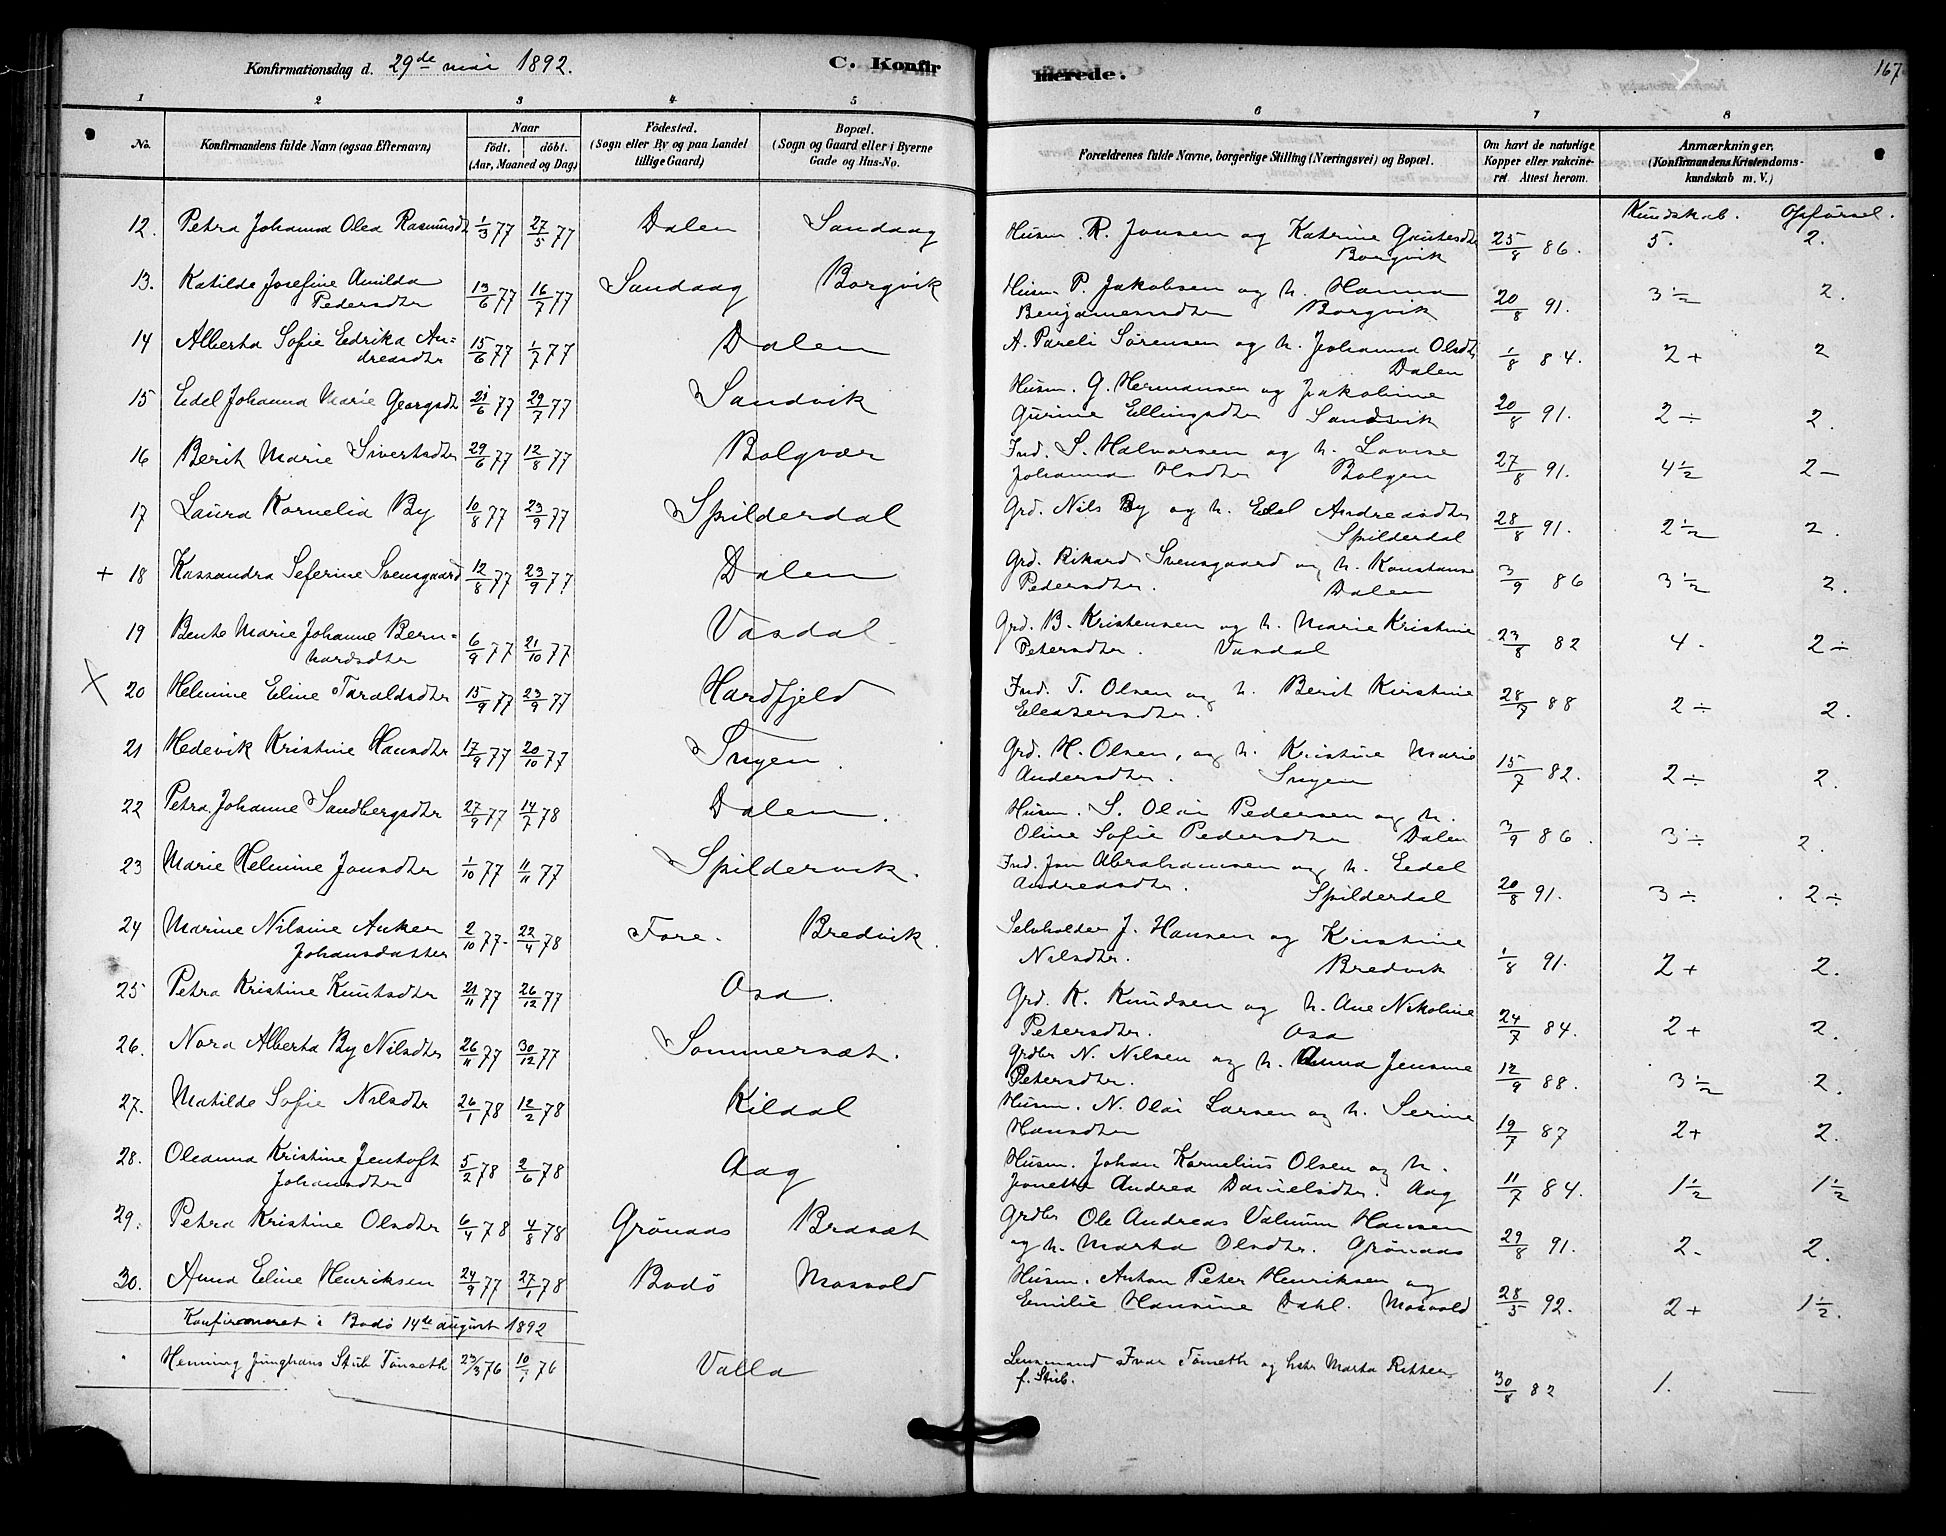 Konfirmationsdag d. 29de mai 1892.
C. Konfirmerede.
167
1 2 3 4 5 6 7 8
No. Konfirmandens fulde Navn (ogsaa Efternavn) Naar født. døbt. (Aar, Maaned og Dag) Fødested. (Sogn eller By og paa Landet tillige Gaard) Bopæl. (Sogn og Gaard eller i Byerne Gade og Hus-No.) Forældrenes fulde Navne, borgerlige Stilling (Næringsvei) og Bopæl. Om havt de naturlige Kopper eller vakcineret. Attest herom. Anmærkninger. (Konfirmandens Kristendomskundskab m. V.)
Kundskab. Opførsel.
12. Petra Johanna Olea Rasmusdt 1/3 77 27/5 77 Dalen Sandaag Husm. R. Jonsen og Katrine Grutesdtr Borgvik 25/8 86. 5. 2.
13. Katilde Josefine Amilda Pedersdtr 13/6 77 16/7 77 Sandaag Borgvik Husm. P. Jakobsen og h. Hanna Benjaminsdtr Borgvik 20/8 91. 3 1/2 2.
14 Alberta Sofie Edrika Andreasdtr 15/6 77 1/7 77 Dalen A. Pareli Sørensen og h. Johanna Olsdtr Dalen 1/8 84. 2+ 2
15 Edel Johanna Marie Georgsdt 21/6 77 29/7 77 Sandvik Husm. G. Hermansen og Jakobine Gurine Ellingsdtr Sandsvik 20/8 91. 2÷ 2.
16 Berit Marie Sivertsdtr 29/6 77 12/8 77 Bolgvær Ind. S. Halvorsen og h. Lovise Johanna Olsdtr Bolgen 27/8 91. 4 1/2 2-
17 Laura Kornelia By 10/8 77 23/9 77 Spilderdal Grd. Nils By og h. Edel Andreasdtr Spilderdal 28/8 91. 2 1/2 2.
+ 18 Kassandra Seferine Svensgaard 12/8 77 23/9 77 Dalen Grd. Rikard Svensgaard og h. Konstanse Pedersdtr. Dalen 3/9 86 3 1/2 2.
19 Bente Marie Johanne Bernhardsdtr 6/9 77 21/10 77 Vasdal Grd. B. Kristensen og h. Marie Kristine Petersdtr. Vasdal 23/8 82 4- 2÷
X 20 Helmine Eline Taraldsdtr 15/9 77 23/9 77 Hardfjeld Ind. T. Olsen og h. Berit Kristine Eleasersdtr. 28/7 88 2÷ 2.
21 Hedevik Kristine Hansdtr 17/9 77 20/10 77 Snyen. Grd. H. Olsen, og h. Kristine Marie Andersdtr. Snyen 15/7 82. 2÷ 2.
22 Petra Johanne Sandbergsdtr 27/9 77 14/7 78 Dalen. Husm. S. Olai Pedersen og h. Oline Sofie Pedersdtr Dalen 3/9 86. 3÷ 2.
23 Marie Helmine Jonsdtr 1/10 77 11/11 77 Spildervik. Ind. Jon Abrahamsen og h. Edel Andreasdtr. Spilderdal 20/8 91. 3÷ 2÷
24 Marine Nilsine Anker Johansdatter 2/10 77. 22/4 78 Fore. Bredvik. Selvholder J. Hansen og Kristine Nilsdtr. Bredvik 1/8 91. 2+ 2.
25 Petra Kristine Knutsdtr 21/11 77 26/12 77 Osa. Grd. K. Knudsen og h. Ane Nikoline Petersdtr. Osa 24/7 84. 2+ 2.
26. Nora Alberta By Nilsdtr 26/11 77 30/12 77 Sommersæt. Grdbr N. Nilsen og h. Anna Jensine Petersdtr. 12/9 88. 3 1/2 2.
27. Matilde Sofie Nilsdtr 26/1 78 12/2 78 Kildal Husm. N. Olai Larsen og h. Serine Hansdtr 19/7 87 2+ 2.
28. Oleanna Kristine Jentoft Johansdtr 5/2 78 2/6 78 Aag Husm. Johan Kornelius Olsen og h. Jonetta Andrea Danielsdtr. Aag 11/7 84. 1 1/2 1 1/2
29. Petra Kristine Olsdtr 6/4 78 4/8 78 Grønaas Brasæt Grdbr Ole Andreas Valnum Hansen og h. Marta Olsdtr. Grønaas 29/8 91. 2- 2.
30. Anna Eline Henriksen 24/9 77 27/1 78 Bodø Mosvold Husm. Anton Peter Henriksen og Emilie Hansine Dahl. Mosvold 28/5 92. 2+ 1 1/2.
Konfirmeret i Bodø 14de august 1892
Henning Junghans Stub Tønseth 23/3 76 76 Valla Lensmand Ivar Tønseth og hstr Marta Rikken f. Stub. 30/8 82 1. —